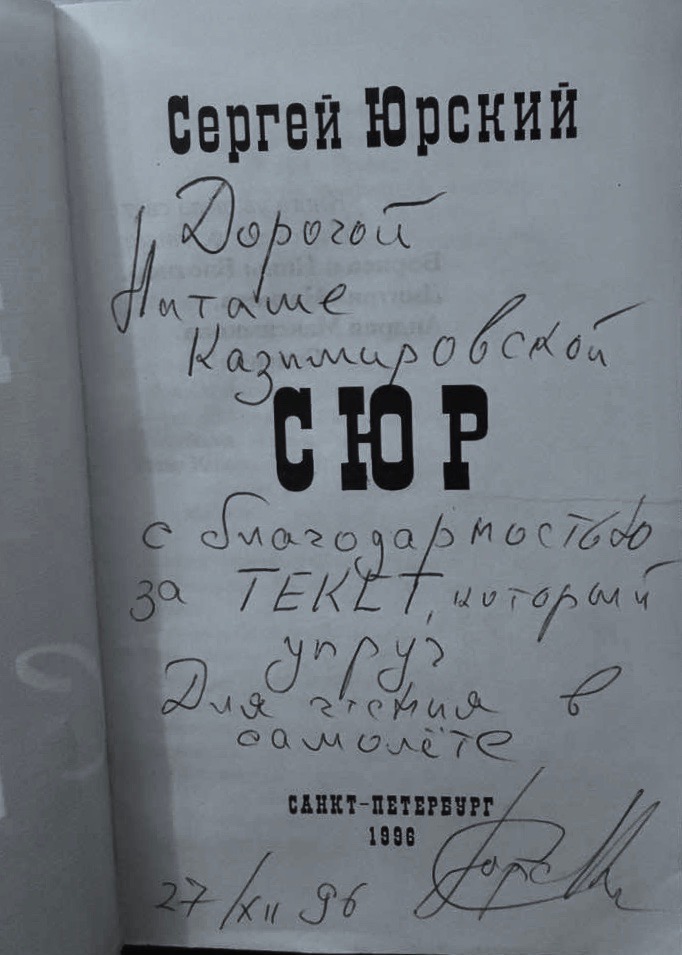 Сергей Юрский
Дорогой
Наташе
Казимировской
СЮР
с благодарностью
за ТЕКСТ, который
упруг
Для чтения в
самолёте
САНКТ-ПЕТЕРБУРГ
1996
27/XII 96